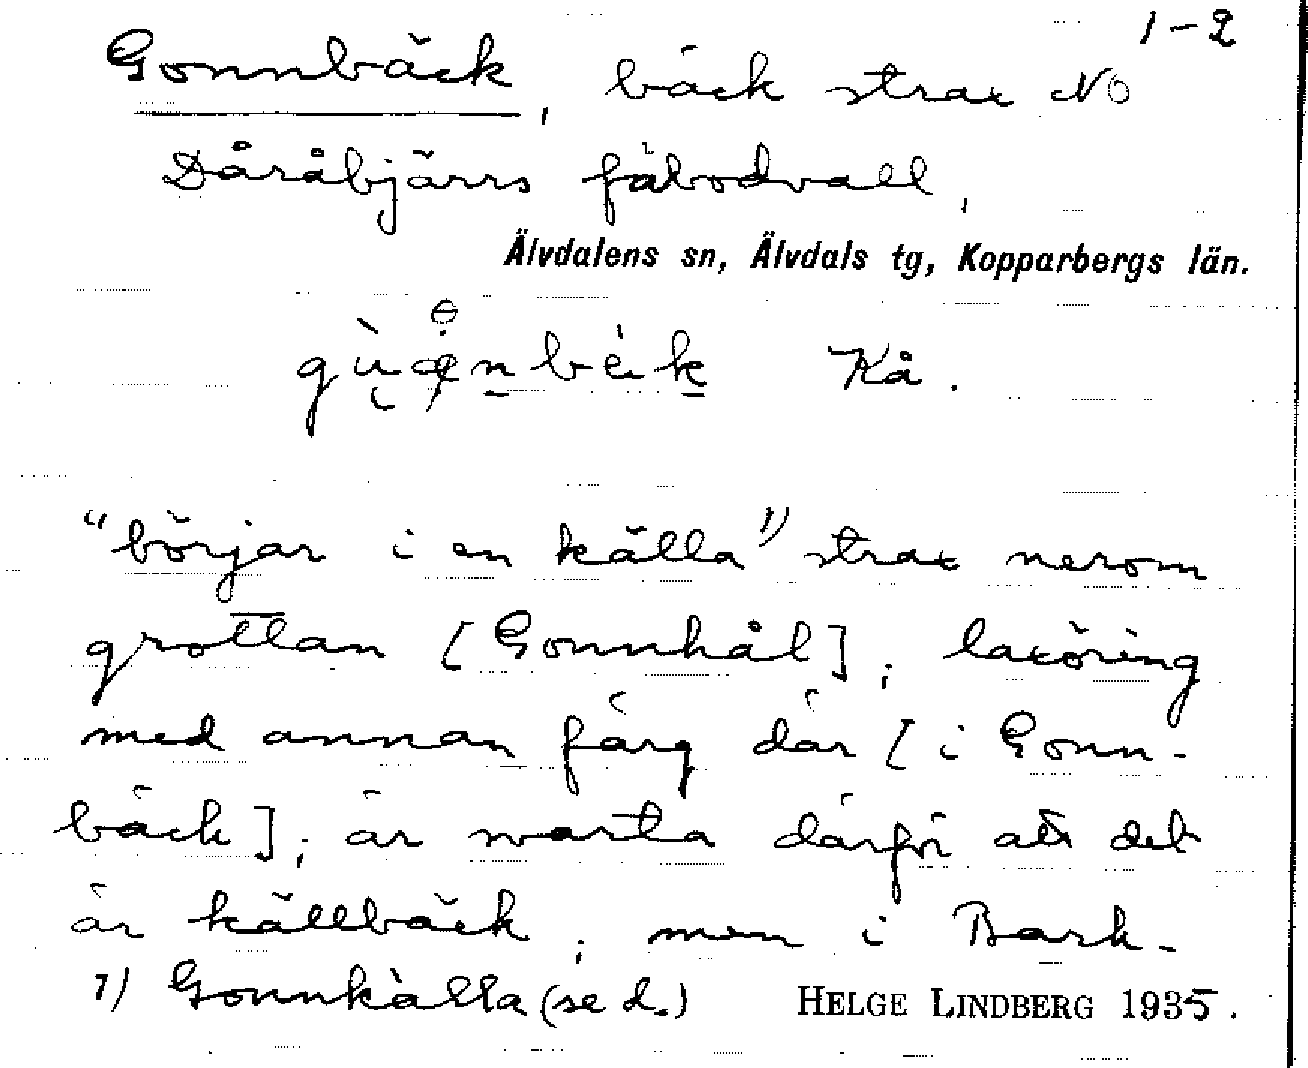 1-2
Gonnbäck, bäck strax NO
Dåråbjärrs fäbodvall,
Älvdalens sn, Älvdals tg, Kopparbergs län.
Kå.
"börjar i en källa" 1) strax nerom
grottan [Gonnhål]; laxöring
med annan färg där [i Gonn-
bäck]; är svarta därför att det
är källbäck; men i Bark-
1) Gonnkälla (se d.) HELGE LINDBERG 1935.